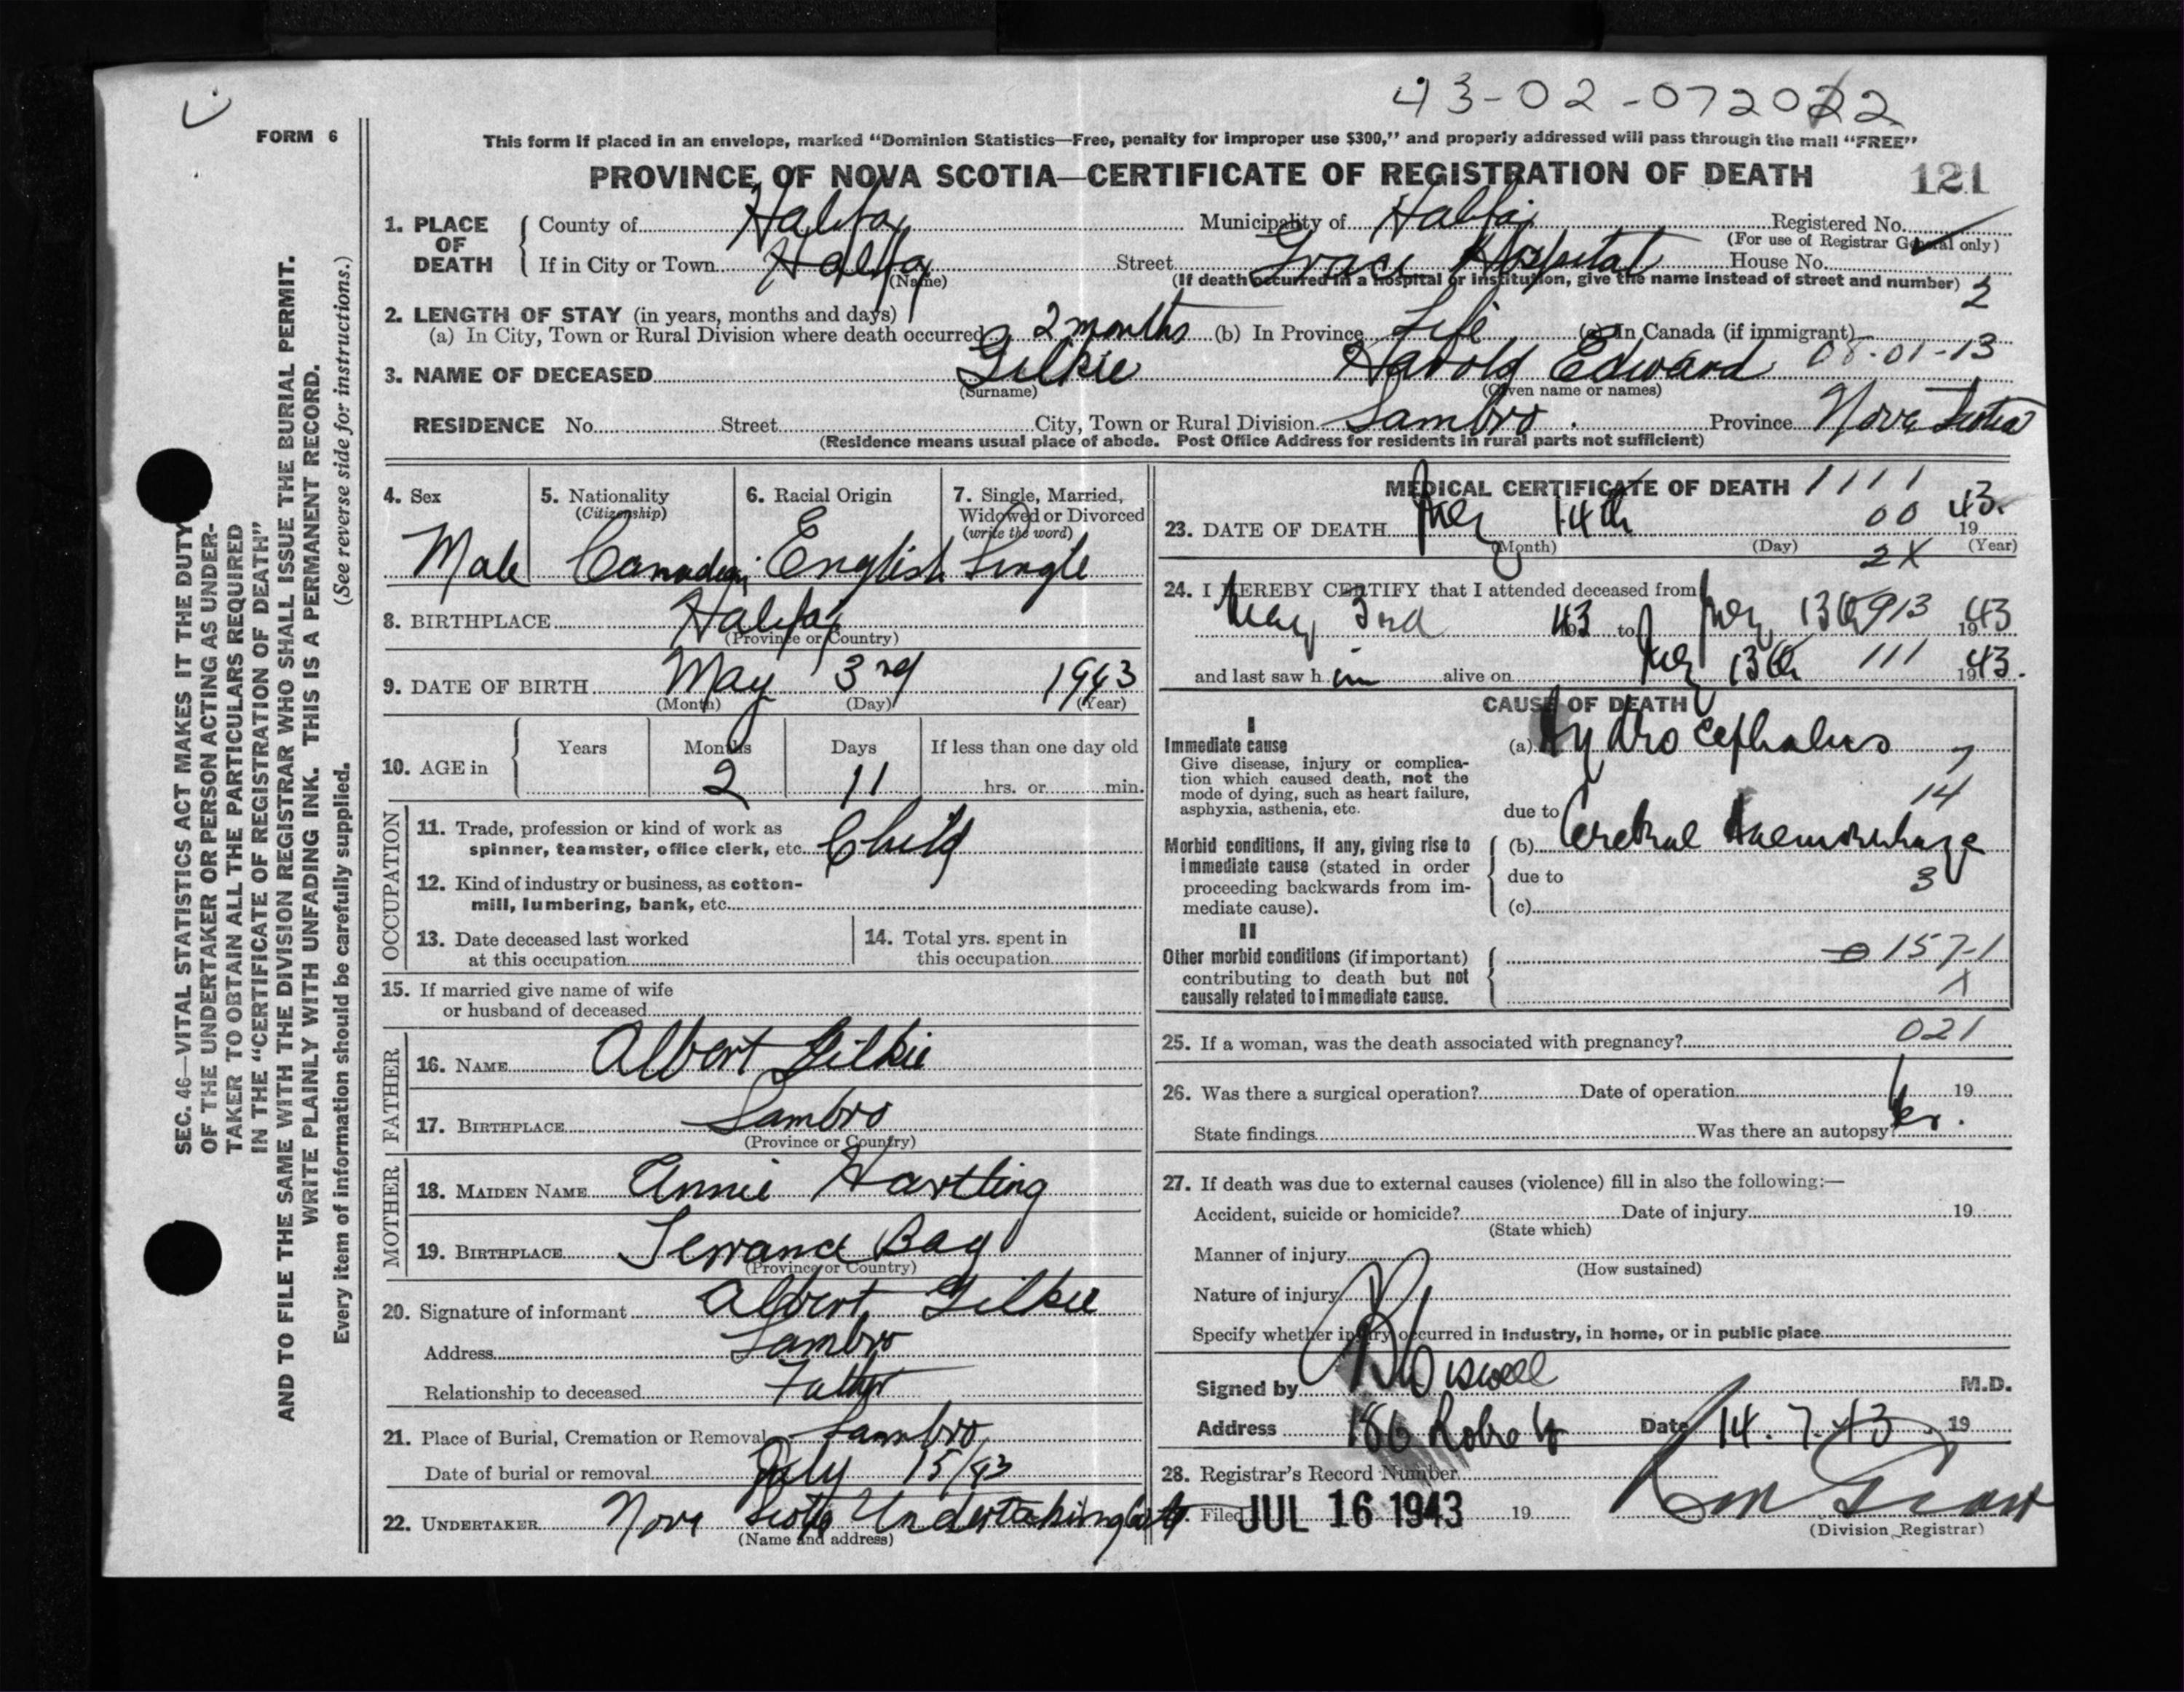 43-02-072022
FORM 6
This form if placed in an envelope, marked "Dominion Statistics—Free, penalty for improper use $300," and properly addressed will pass through the mail "FREE"
PROVINCE OF NOVA SCOTIA—CERTIFICATE OF REGISTRATION OF DEATH 121
1. PLACE OF DEATH County of Halifax Municipality of Halifax Registered No.
(For use of Registrar General only)
If in City or Town Halifax Street Grace Hospital House No.
(Name) (If death occurred in a hospital or institution, give the name instead of street and number) 2
2. LENGTH OF STAY (in years, months and days)
(a) In City, Town or Rural Division where death occurred 2 months (b) In Province Life (c) In Canada (if immigrant)
3. NAME OF DECEASED Gilkie Harold Edward 08-01-13
(Surname) (Given name or names)
RESIDENCE No. Street City, Town or Rural Division Sambro Province Nova Scotia
(Residence means usual place of abode. Post Office Address for residents in rural parts not sufficient)
SEC. 46—VITAL STATISTICS ACT MAKES IT THE DUTY
OF THE UNDERTAKER OR PERSON ACTING AS UNDER-
TAKER TO OBTAIN ALL THE PARTICULARS REQUIRED
IN THE "CERTIFICATE OF REGISTRATION OF DEATH"
AND TO FILE THE SAME WITH THE DIVISION REGISTRAR WHO SHALL ISSUE THE BURIAL PERMIT.
WRITE PLAINLY WITH UNFADING INK. THIS IS A PERMANENT RECORD.
Every item of information should be carefully supplied. (See reverse side for instructions.)
4. Sex 5. Nationality 6. Racial Origin 7. Single, Married,
(Citizenship) Widowed or Divorced
(write the word)
Male Canadian English Single
8. BIRTHPLACE Halifax
(Province or Country)
9. DATE OF BIRTH May 3rd 1943
(Month) (Day) (Year)
10. AGE in Years Months Days If less than one day old
2 11 hrs. or min.
OCCUPATION
11. Trade, profession or kind of work as
spinner, teamster, office clerk, etc. Child
12. Kind of industry or business, as cotton-
mill, lumbering, bank, etc.
13. Date deceased last worked
at this occupation
14. Total yrs. spent in
this occupation
15. If married give name of wife
or husband of deceased
FATHER
16. NAME Albert Gilkie
17. BIRTHPLACE Sambro
(Province or Country)
MOTHER
18. MAIDEN NAME Annie Hartling
19. BIRTHPLACE Terrance Bay
(Province or Country)
20. Signature of informant Albert Gilkie
Address Sambro
Relationship to deceased Father
21. Place of Burial, Cremation or Removal Sambro
Date of burial or removal July 15/43
22. UNDERTAKER Nova Scotia Undertaking
(Name and address)
MEDICAL CERTIFICATE OF DEATH 1111
23. DATE OF DEATH July 14th 00 1943
(Month) (Day) (Year)
2X
24. I HEREBY CERTIFY that I attended deceased from
May 3rd 43 to July 13th 913 1943
and last saw him alive on July 13th 111 1943.
CAUSE OF DEATH
I
Immediate cause
Give disease, injury or complica-
tion which caused death, not the
mode of dying, such as heart failure,
asphyxia, asthenia, etc.
(a) Hydrocephalus 7
14
due to
Morbid conditions, if any, giving rise to
immediate cause (stated in order
proceeding backwards from im-
mediate cause).
(b) Cerebral Haemorrhage
due to 3
(c)
II
Other morbid conditions (if important)
contributing to death but not
causally related to immediate cause.
0 157-1
X
25. If a woman, was the death associated with pregnancy? 021
26. Was there a surgical operation? Date of operation 19
State findings Was there an autopsy?
27. If death was due to external causes (violence) fill in also the following:—
Accident, suicide or homicide? Date of injury 19
(State which)
Manner of injury
(How sustained)
Nature of injury
Specify whether injury occurred in industry, in home, or in public place
Signed by M.D.
Address 186 Robie St Date 14.7.43 19
28. Registrar's Record Number
Filed JUL 16 1943 19
(Division Registrar)